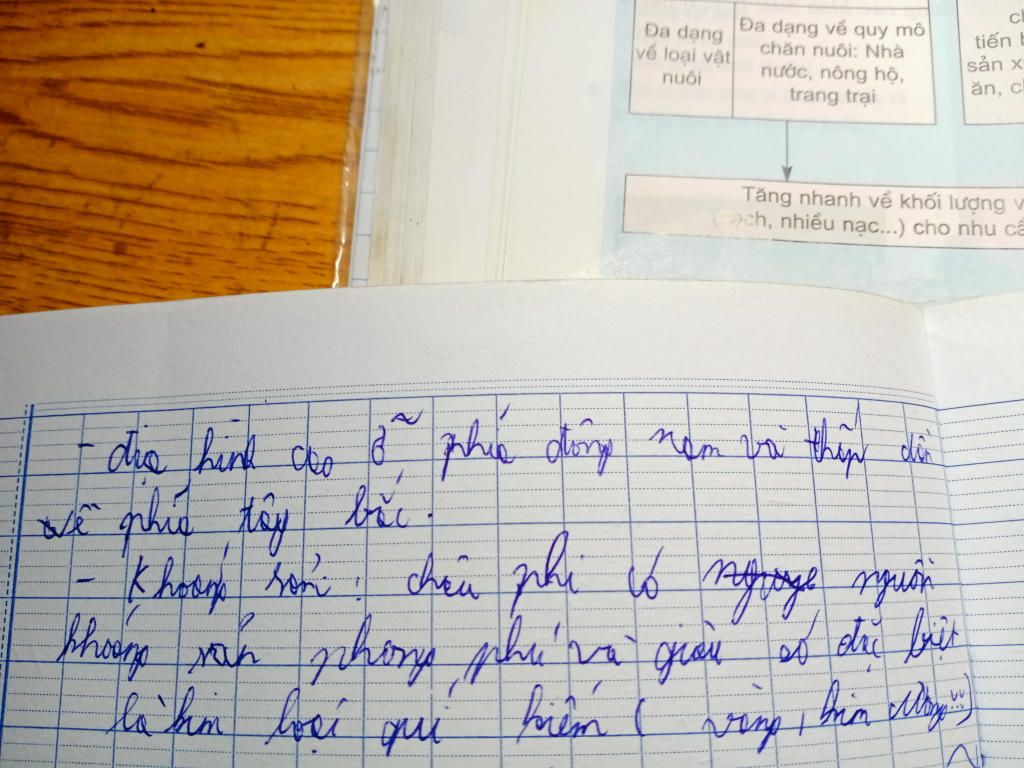 Đa dạng
về loại vật
nuôi
Đa dạng về quy mô
chăn nuôi: Nhà
nước, nông hộ,
trang trại
tiến
sản x
ăn, c
Tăng nhanh về khối lượng v
(sạch, nhiều nạc...) cho nhu cầ
- địa hình cao ở phía đông nam và thấp dần
về phía tây bắc.
- Khoáng sản: châu phi có nguồn
khoáng sản phong phú và giàu có đặc biệt
là kim loại quí hiếm ( vàng, kim cương...)